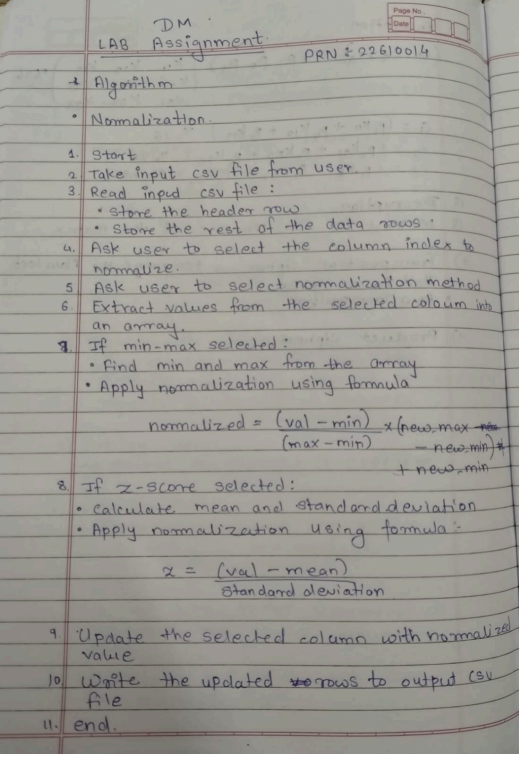 Page No.
Date
DM
LAB Assignment
PRN : 22610014
* Algorithm
• Normalization.
1. Start
2 Take input csv file from user.
3 Read input csv file :
• store the header row
• Store the rest of the data rows.
4. Ask user to select the column index to
normalize.
5 Ask user to select normalization method
6 Extract values from the selected coloum into
an array.
7. If min-max selected :
• find min and max from the array
• Apply normalization using formula
normalized = (val - min) / (max - min) x (new_max
- new_min)
+ new_min
8. If z-score selected :
• calculate mean and standard deviation
• Apply normalization using formula :-
z = (val - mean)
standard deviation
9. Update the selected column with normalized
value
10. Write the updated rows to output csv
file
11. end.